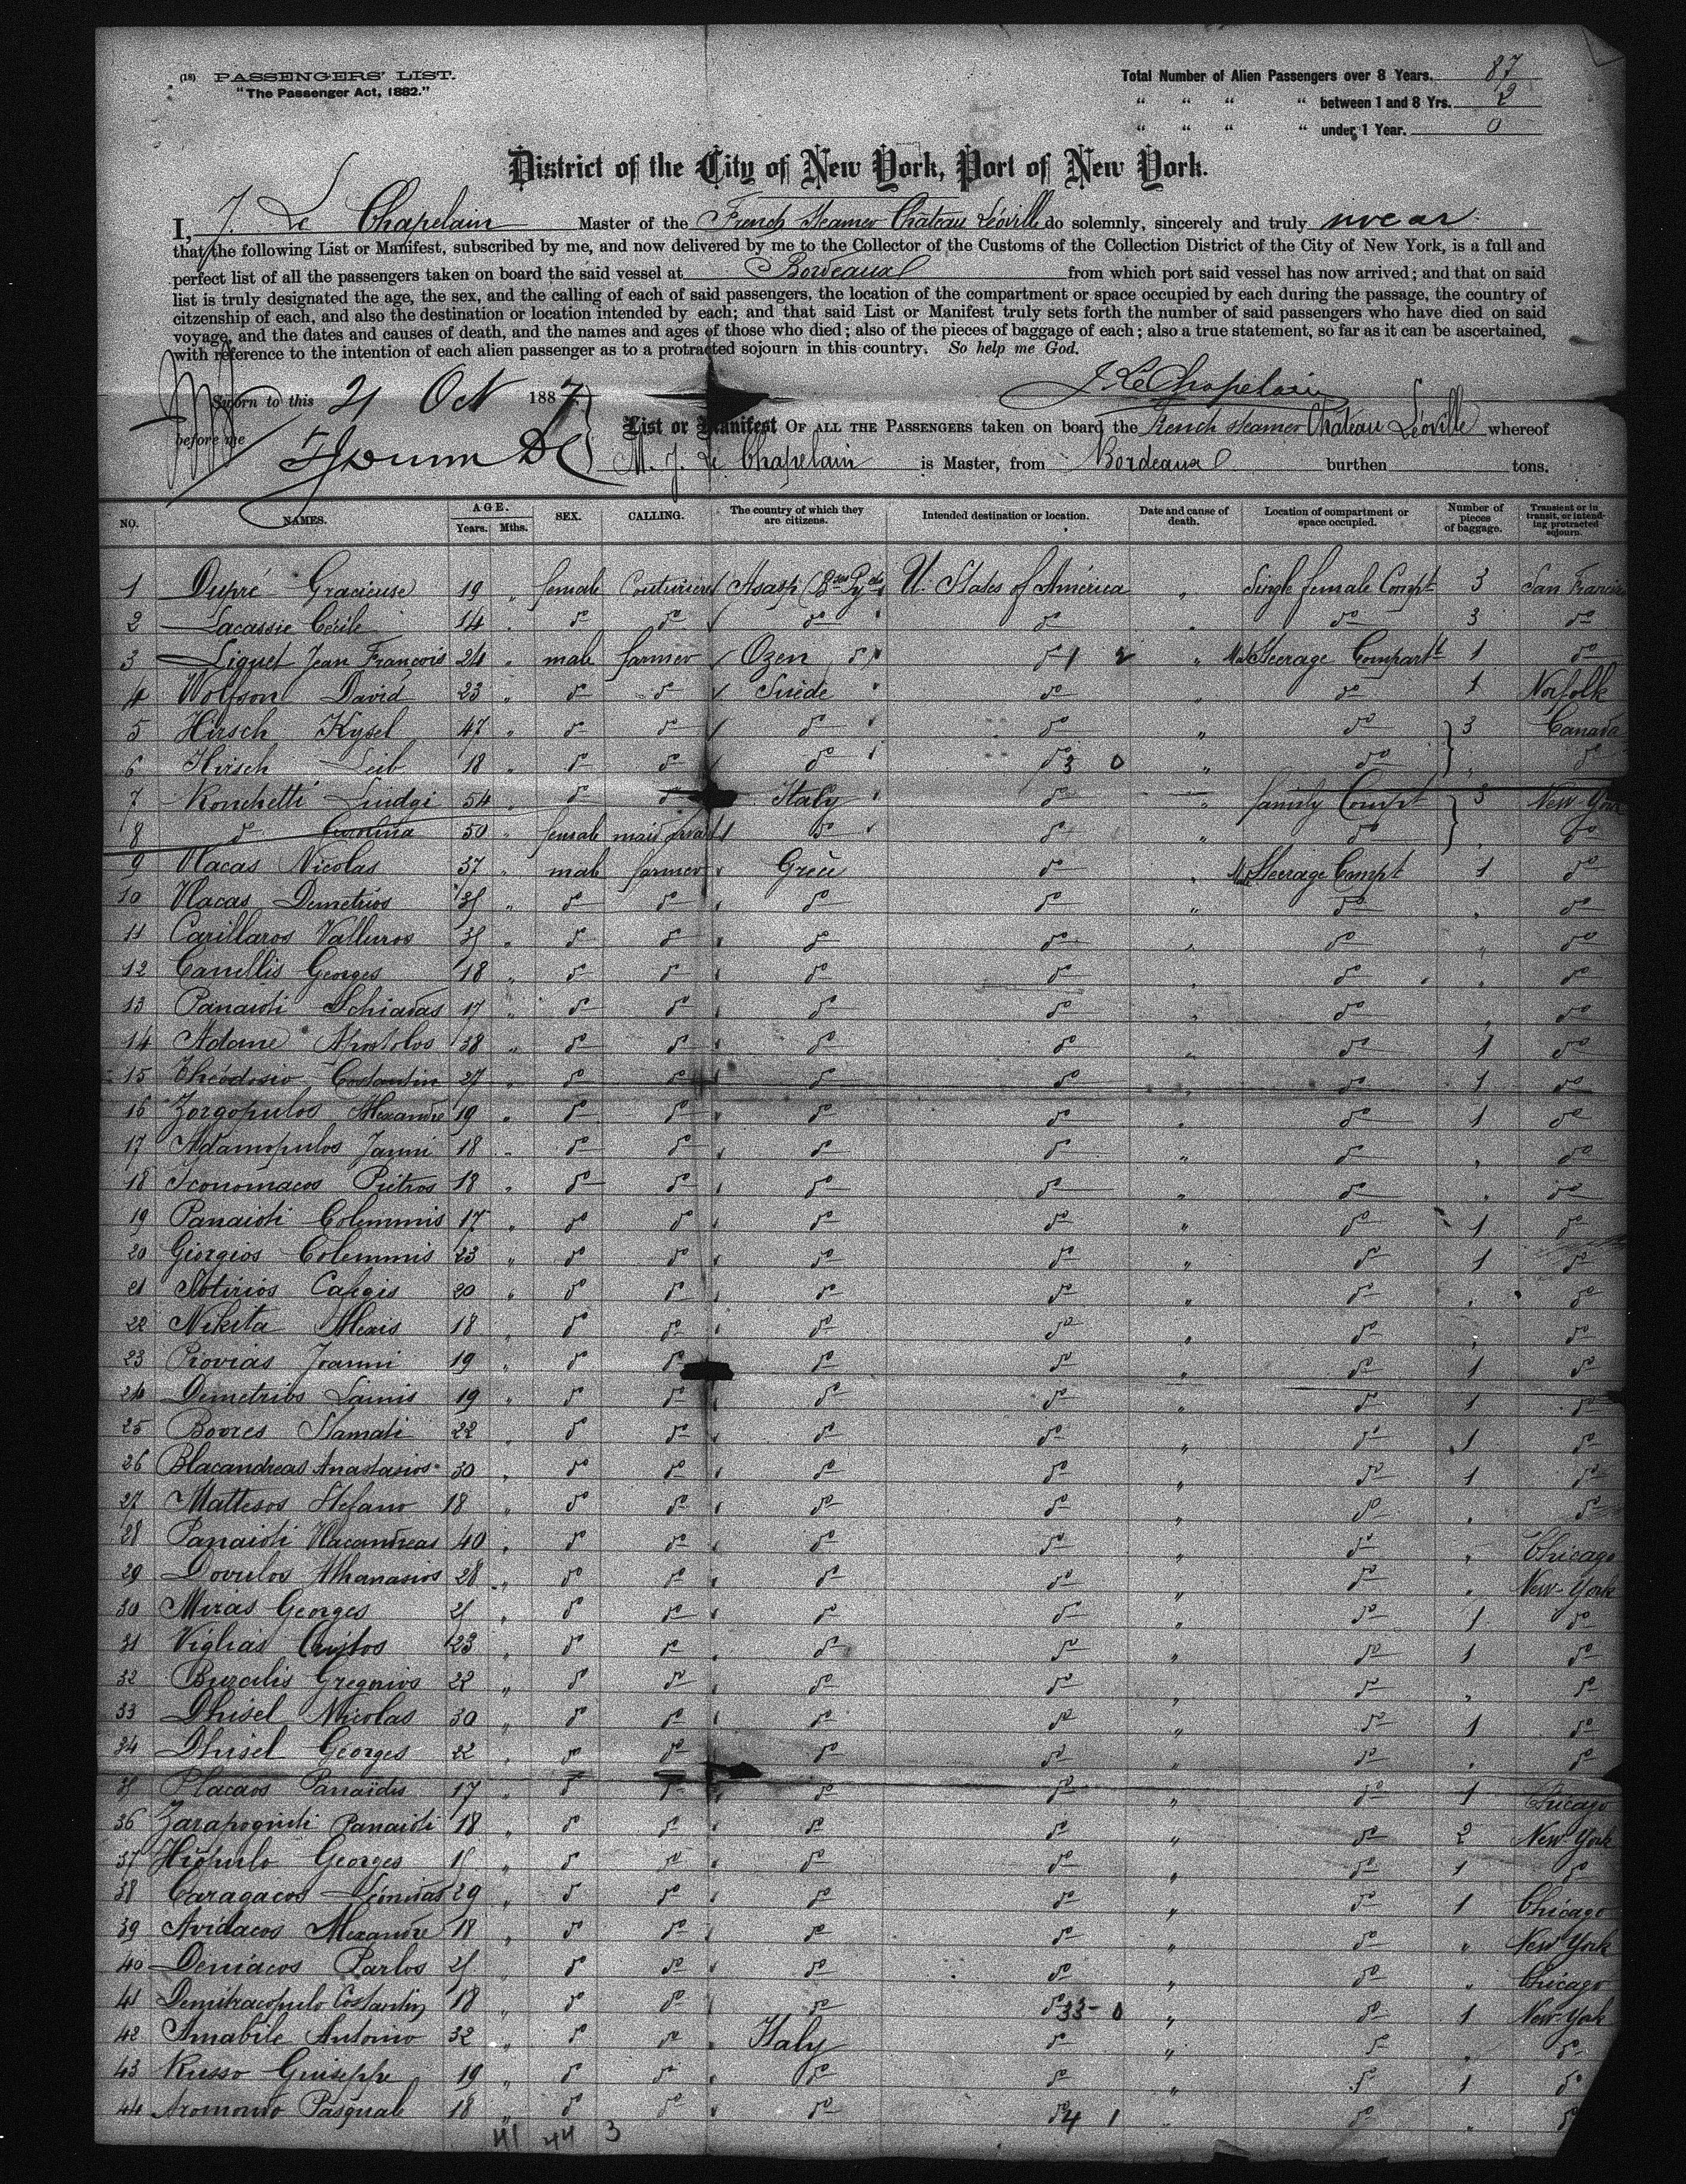 (18) PASSENGERS' LIST.
"The Passenger Act, 1882."
Total Number of Alien Passengers over 8 Years. 87
" " " " between 1 and 8 Yrs. 2
" " " " under 1 Year. 0
District of the City of New York, Port of New York.
I, J. Le Chapelain Master of the French Steamer Château Léoville do solemnly, sincerely and truly swear
that the following List or Manifest, subscribed by me, and now delivered by me to the Collector of the Customs of the Collection District of the City of New York, is a full and
perfect list of all the passengers taken on board the said vessel at Bordeaux from which port said vessel has now arrived; and that on said
list is truly designated the age, the sex, and the calling of each of said passengers, the location of the compartment or space occupied by each during the passage, the country of
citzenship of each, and also the destination or location intended by each; and that said List or Manifest truly sets forth the number of said passengers who have died on said
voyage, and the dates and causes of death, and the names and ages of those who died; also of the pieces of baggage of each; also a true statement, so far as it can be ascertained,
with reference to the intention of each alien passenger as to a protracted sojourn in this country. So help me God.
J. Le Chapelain
Sworn to this 21 Oct 1887
before me
List or Manifest OF ALL THE PASSENGERS taken on board the French steamer Château Léoville whereof
M. J. Le Chapelain is Master, from Bordeaux burthen tons.
NO. NAMES. AGE. Years. Mths. SEX. CALLING. The country of which they are citizens. Intended destination or location. Date and cause of death. Location of compartment or space occupied. Number of pieces of baggage. Transient or in transit, or intending protracted sojourn.
1 Dupré Gracieuse 19 " female Couturière Asasp (Bses Pyées) U. States of América " Single female Compt 3 San Francisco
2 Lacassie Cécile 14 " do do do do " do 3 do
3 Liguet Jean François 24 " male farmer Ozen do do 1 2 " Male Steerage Compartt 1 do
4 Wolfson David 23 " do do Suède do " do 1 Norfolk
5 Hirsch Kysel 47 " do do do do " do 3 Canada
6 Hirsch Leib 18 " do do do do 3 0 " do " do
7 Ronchetti Luidgi 54 " do do Italy do " family Compt 3 New York
8 do Carolina 50 " female do do " do " do
9 Vlacas Nicolas 37 " male farmer Grèce do " Male Steerage Compt 1 do
10 Vlacas Demetrios 35 " do do do do " do " do
11 Carillaros Valluros 35 " do do do do " do " do
12 Canellis Georges 18 " do do do do " do " do
13 Panaioti Schiadas 17 " do do do do " do " do
14 Adame Apostolos 38 " do do do do " do 1 do
15 Théodosio Costantin 27 " do do do do " do 1 do
16 Zorgopulos Alexandre 19 " do do do do " do 1 do
17 Adamopulos Janni 18 " do do do do " do " do
18 Iconomacos Pietros 18 " do do do do " do " do
19 Panaioti Colemmis 17 " do do do do " do 1 do
20 Giorgios Colemmis 23 " do do do do " do 1 do
21 Sotirios Cafegis 20 " do do do do " do " do
22 Nikita Alexis 18 " do do do do " do " do
23 Piovias Joanni 19 " do do do do " do 1 do
24 Demetrios Lainis 19 " do do do do " do 1 do
25 Bovres Stamati 22 " do do do do " do 1 do
26 Blacandreas Anastasios 30 " do do do do " do 1 do
27 Mattesos Stefano 18 " do do do do " do " do
28 Panaioti Vlacandreas 40 " do do do do " do " Chicago
29 Dovulos Athanasios 28 " do do do do " do " New-York
30 Miras Georges 25 " do do do do " do 1 do
31 Viglias 23 " do do do do " do 1 do
32 Burcilis Gregorios 22 " do do do do " do " do
33 Dhisel Nicolas 30 " do do do do " do 1 do
34 Dhisel Georges 22 " do do do do " do " do
35 Placaos Panaidis 17 " do do do do " do 1 Chicago
36 Panaioti 18 " do do do do " do 2 New York
37 Georges " do do do do " do 1 do
38 Caragacos Léonidas 29 " do do do do " do 1 Chicago
39 Avidacos Alexandre 18 " do do do do " do " New York
40 Deniacos Parlos 25 " do do do do " do " Chicago
41 Demitracopulo Costantin 18 " do do do do 33 0 " do 1 New-York
42 Amabile Antonio 32 " do do Italy do " do " do
43 Russo Guiseppe 19 " do do do do " do 1 do
44 Aromondo Pasquale 18 " do do do do 4 1 " do " do
41 44 3